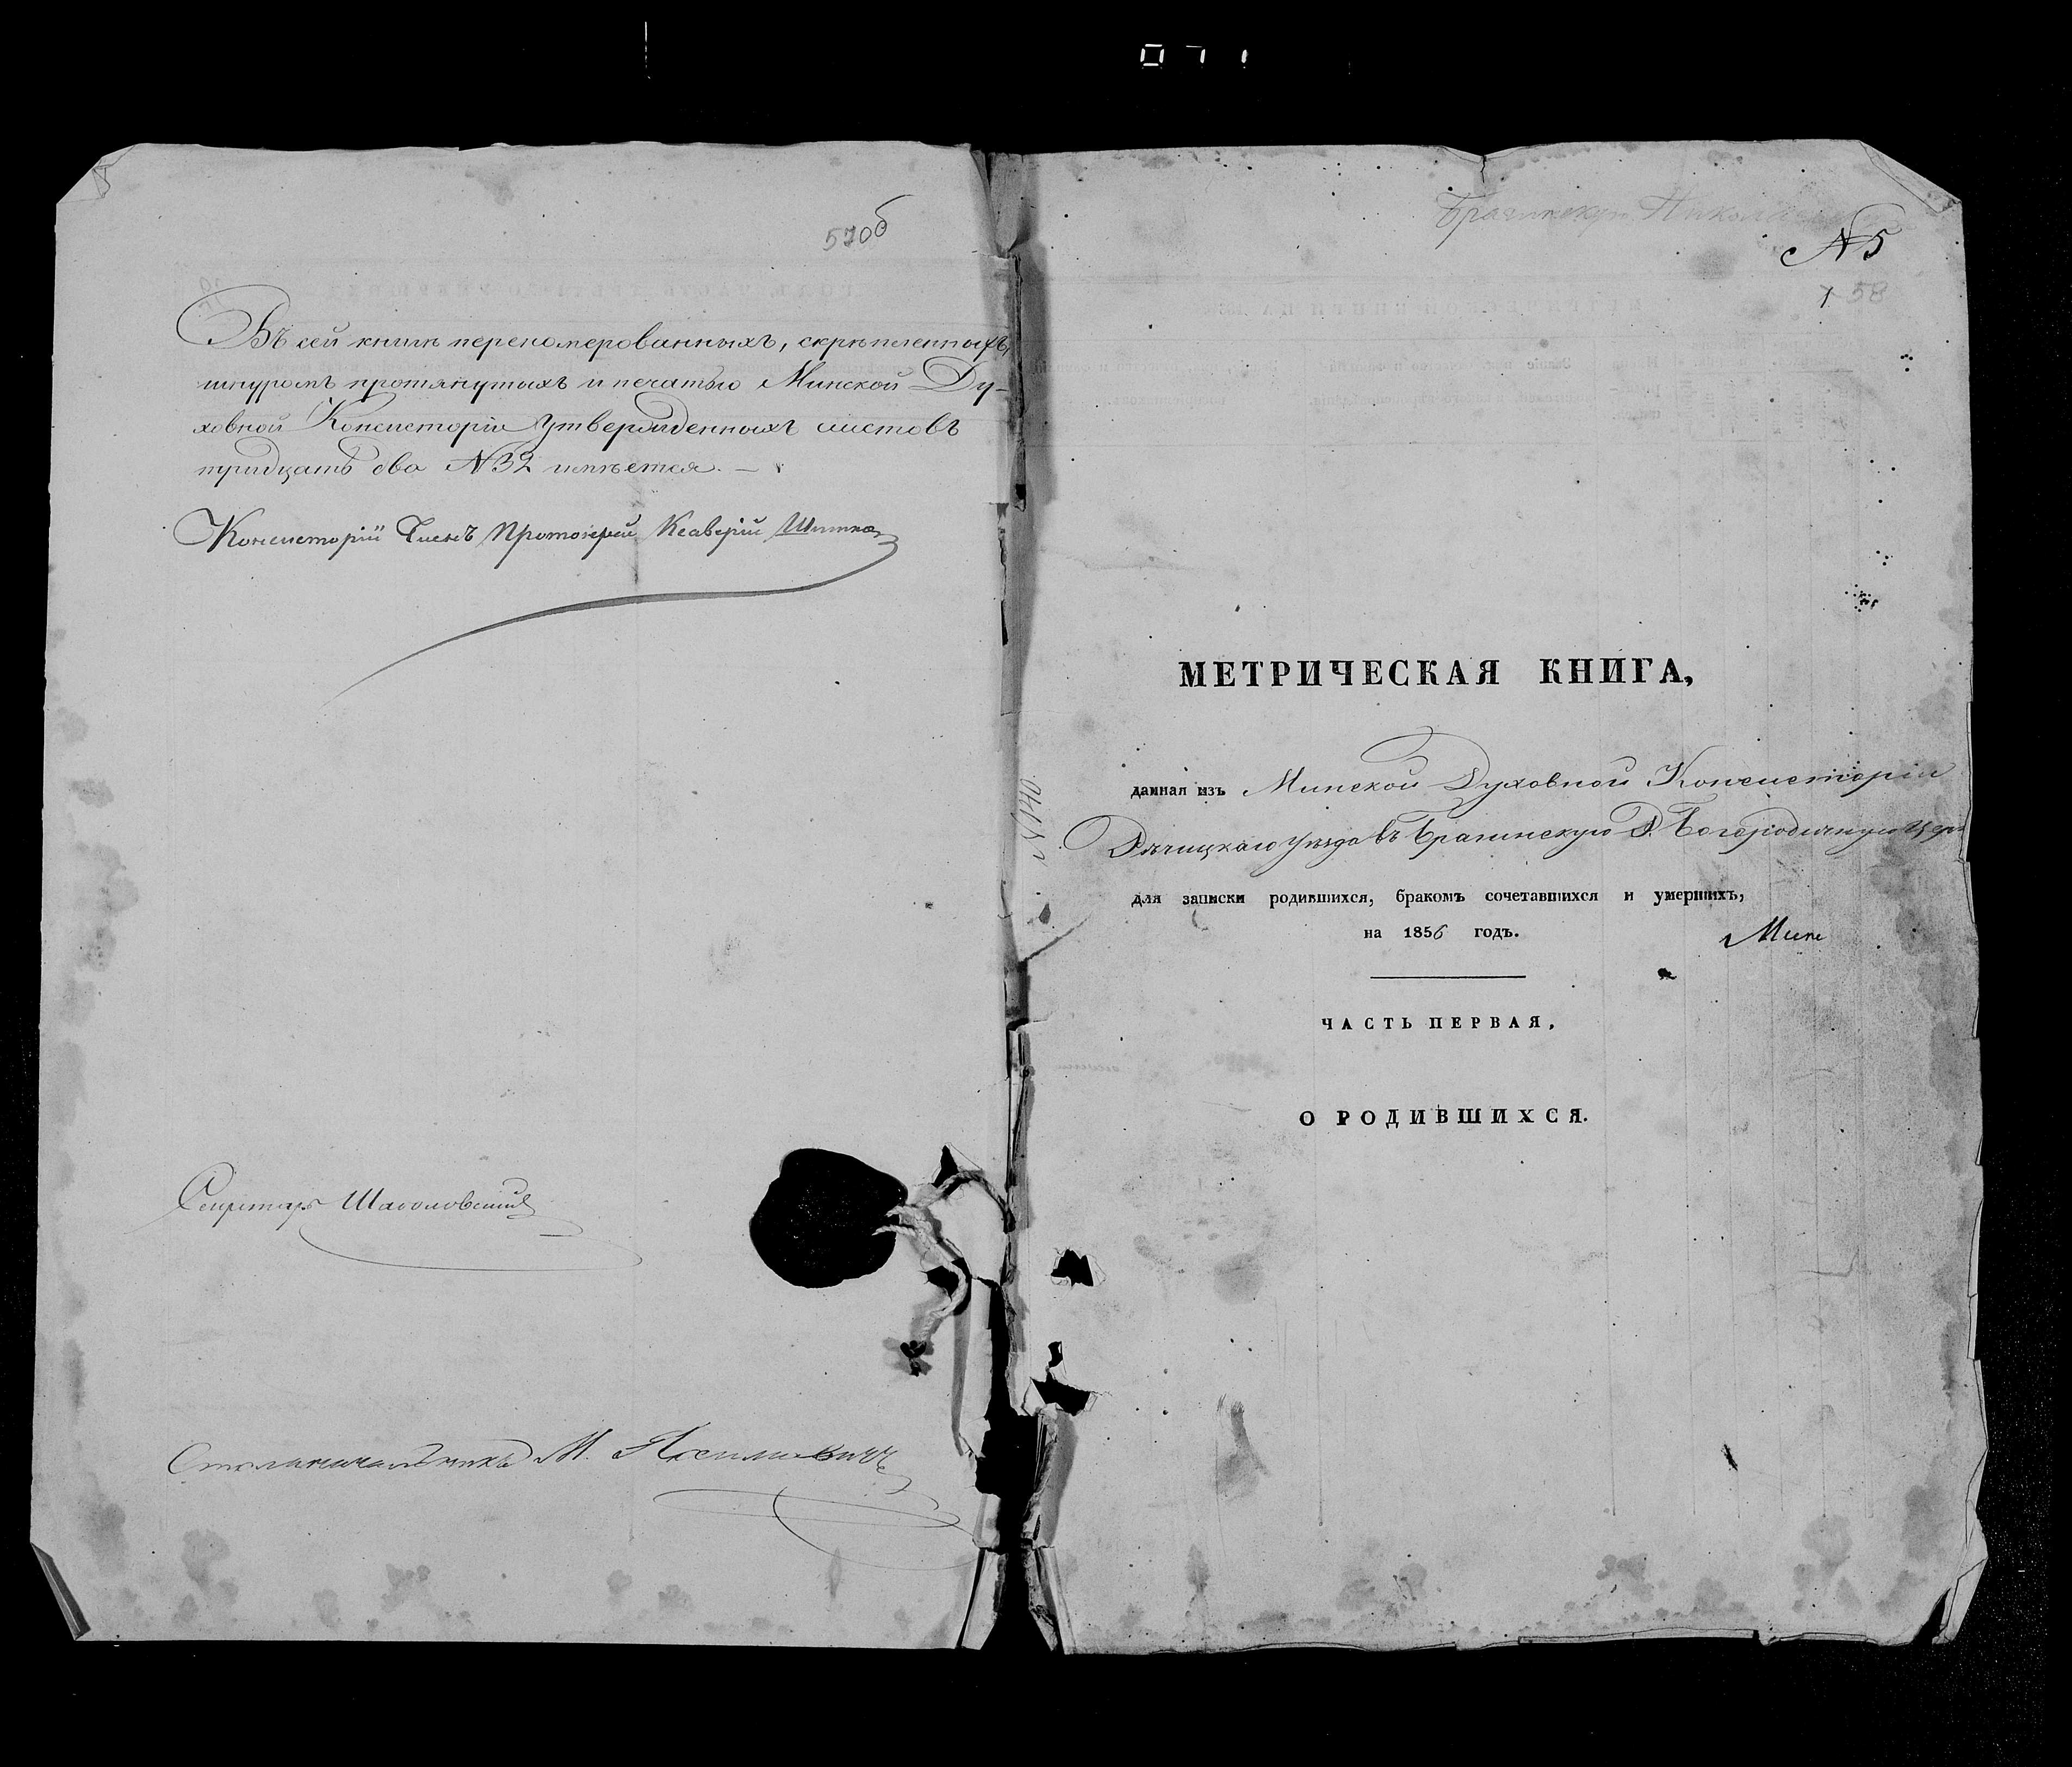 071
57об
Въ сей книгѣ переномерованныхъ, скрѣпленныхъ,
шнуромъ протянутыхъ и печатью Минской Ду-
ховной Консисторіи утвержденныхъ листовъ
тридцать два №32 имѣется.
Консисторіи Членъ Протоіерей Ксаверій
Секретарь
Столоначальникъ М.
Брагинск Николаевск
№5
1 58
МЕТРИЧЕСКАЯ КНИГА,
данная изъ Минской Духовной Консисторіи
Рѣчицкаго уѣзда въ Брагинскую Р. Богородичную Цер
для записки родившихся, бракомъ сочетавшихся и умершихъ,
на 1856 годъ.
ЧАСТЬ ПЕРВАЯ,
О РОДИВШИХСЯ.